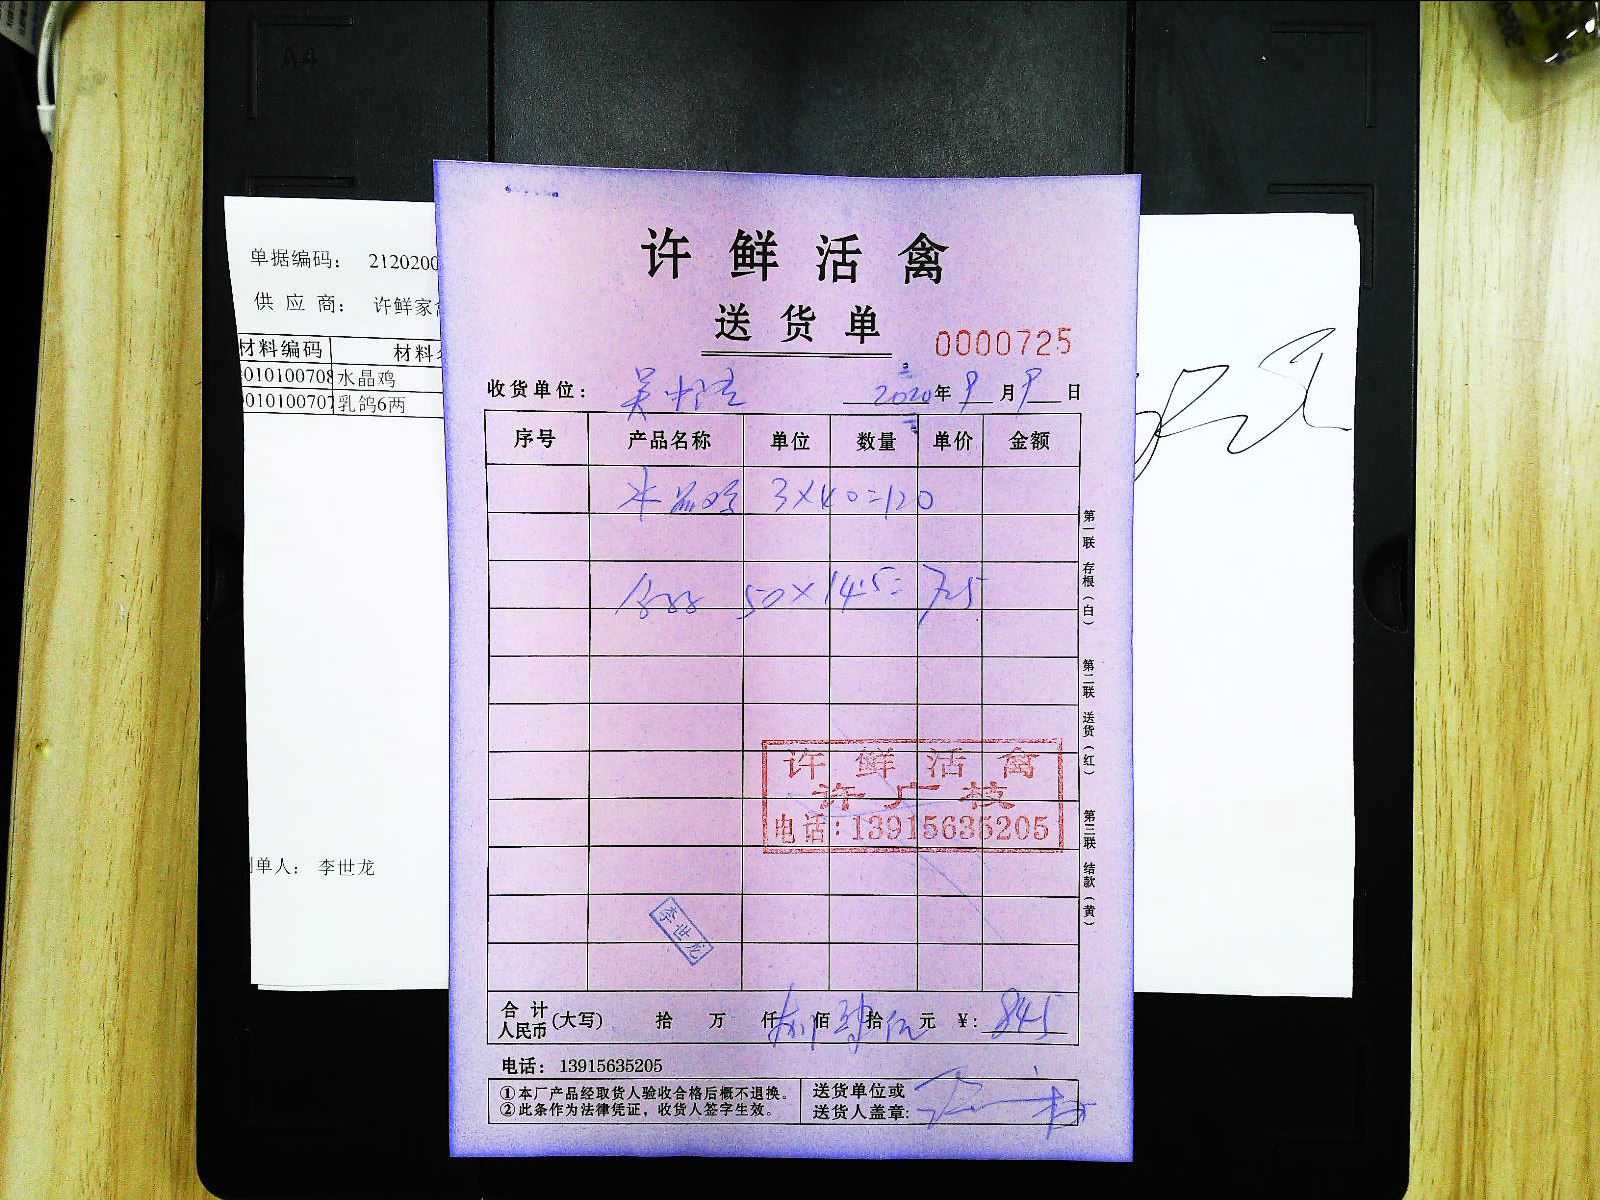 单据编码： 2120200
供 应 商： 许鲜家
材料编码 材料
010100708 水晶鸡
010100707 乳鸽6两
单人： 李世龙
许鲜活禽
送货单
0000725
收货单位： 2020年9月9日
序号 产品名称 单位 数量 单价 金额
水晶鸡 3×40=120
50×14.5=725
第一联 存根（白）
第二联 送货（红）
第三联 结款（黄）
许鲜活禽
许广枝
电话：13915635205
李世龙
合计人民币（大写） 拾 万 仟 捌 佰 肆 拾 伍 元 ¥：845
电话： 13915635205
①本厂产品经取货人验收合格后概不退换。
②此条作为法律凭证，收货人签字生效。
送货单位或
送货人盖章：
A4